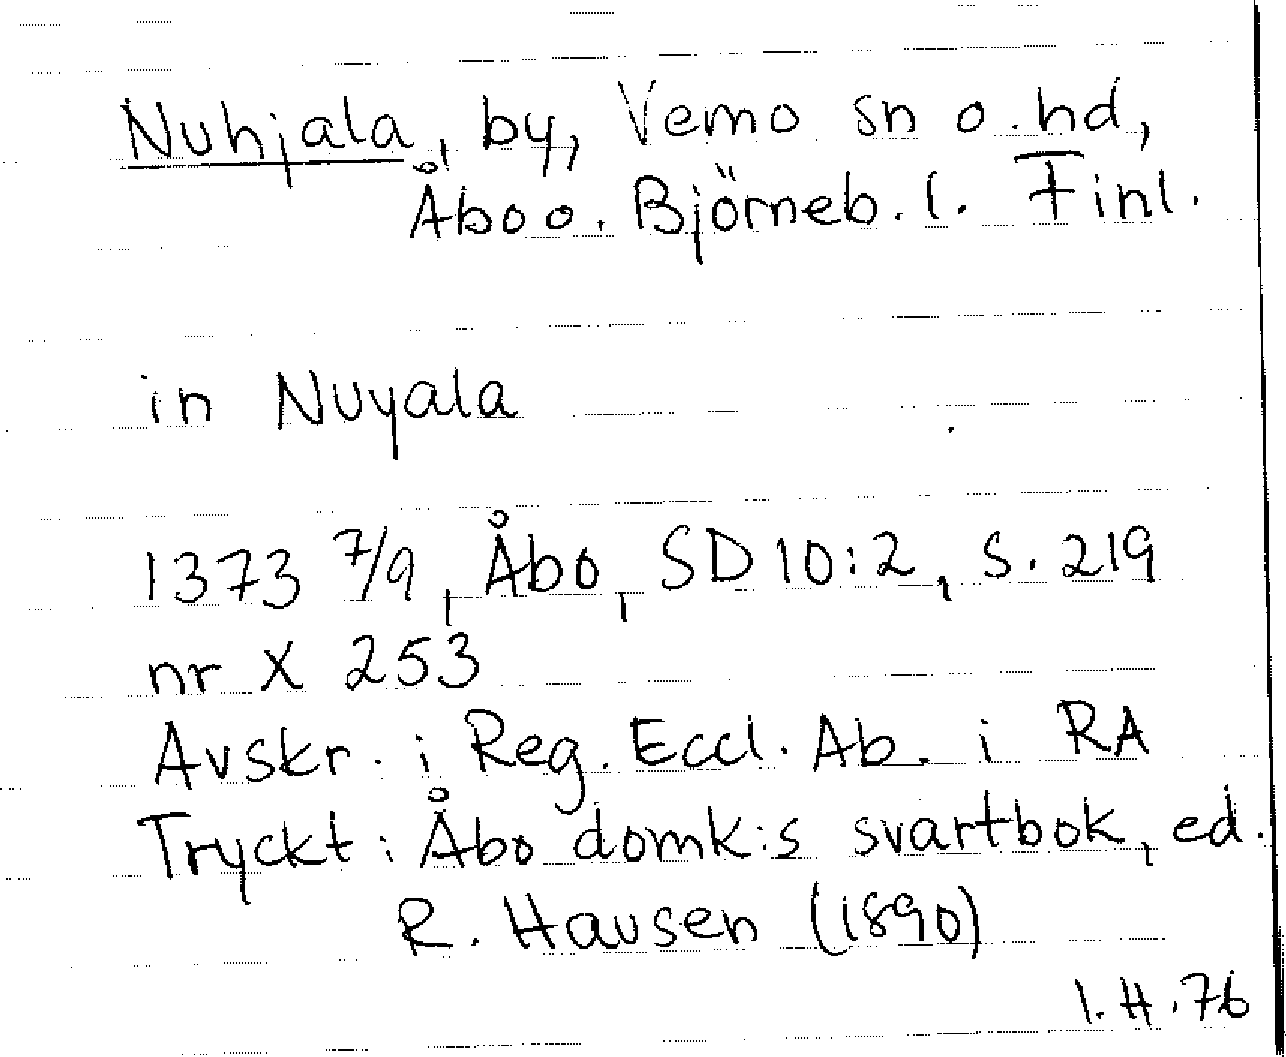 Nuhjala, by, Vemo sn o. hd,
Åbo o. Björneb. l. Finl.
in Nuyala
1373 7/9, Åbo, SD 10:2, s. 219
nr X 253
Avskr. i Reg. Eccl. Ab. i RA
Tryckt: Åbo domk:s svartbok, ed.
R. Hausen (1890)
I. H. 76